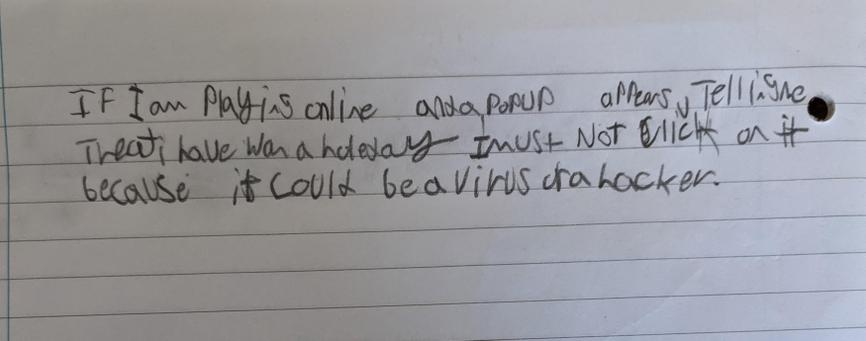 IF I am Playing online and a POPUP appears, Telling me
That i have Won a holeday I must Not Click on it
because it Could be a virus or a hacker.